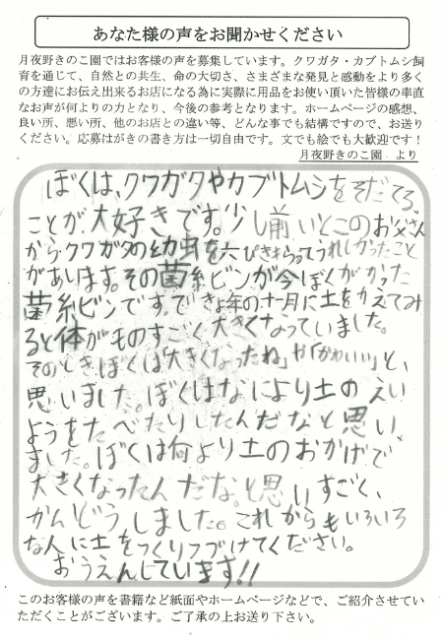 あなた様の声をお聞かせください
月夜野きのこ園ではお客様の声を募集しています。クワガタ・カブトムシ飼
育を通じて、自然との共生、命の大切さ、さまざまな発見と感動をより多く
の方達にお伝え出来るお店になる為に実際に用品をお使い頂いた皆様の率直
なお声が何よりの力となり、今後の参考となります。ホームページの感想、
良い所、悪い所、他のお店との違い等、どんな事でも結構ですので、お送り
ください。応募はがきの書き方は一切自由です。文でも絵でも大歓迎です！
月夜野きのこ園 より
ぼくは、クワガタやカブトムシをそだてる
ことが、大好きです。少し前いとこのお父さん
からクワガタの幼虫を六ぴきもらってうれしかったこと
があります。その菌糸ビンが今ぼくがかった
菌糸ビンです。できょ年の十月に土をかえてみ
ると体がものすごく、大きくなっていました。
そのときぼくは「大きくなったね」や「かわいい」と、
思いました。ぼくはなにより土のえい
ようをたべたりしたんだなと思い
ました。ぼくは何より土のおかげで
大きくなったんだな。と思いすごく、
かんどうしました。これからもいろいろ
な人に土をつくりつづけてください。
おうえんしています!!
このお客様の声を書籍など紙面やホームページなどで、ご紹介させてい
ただくことがございます。ご了承の上お送り下さい。